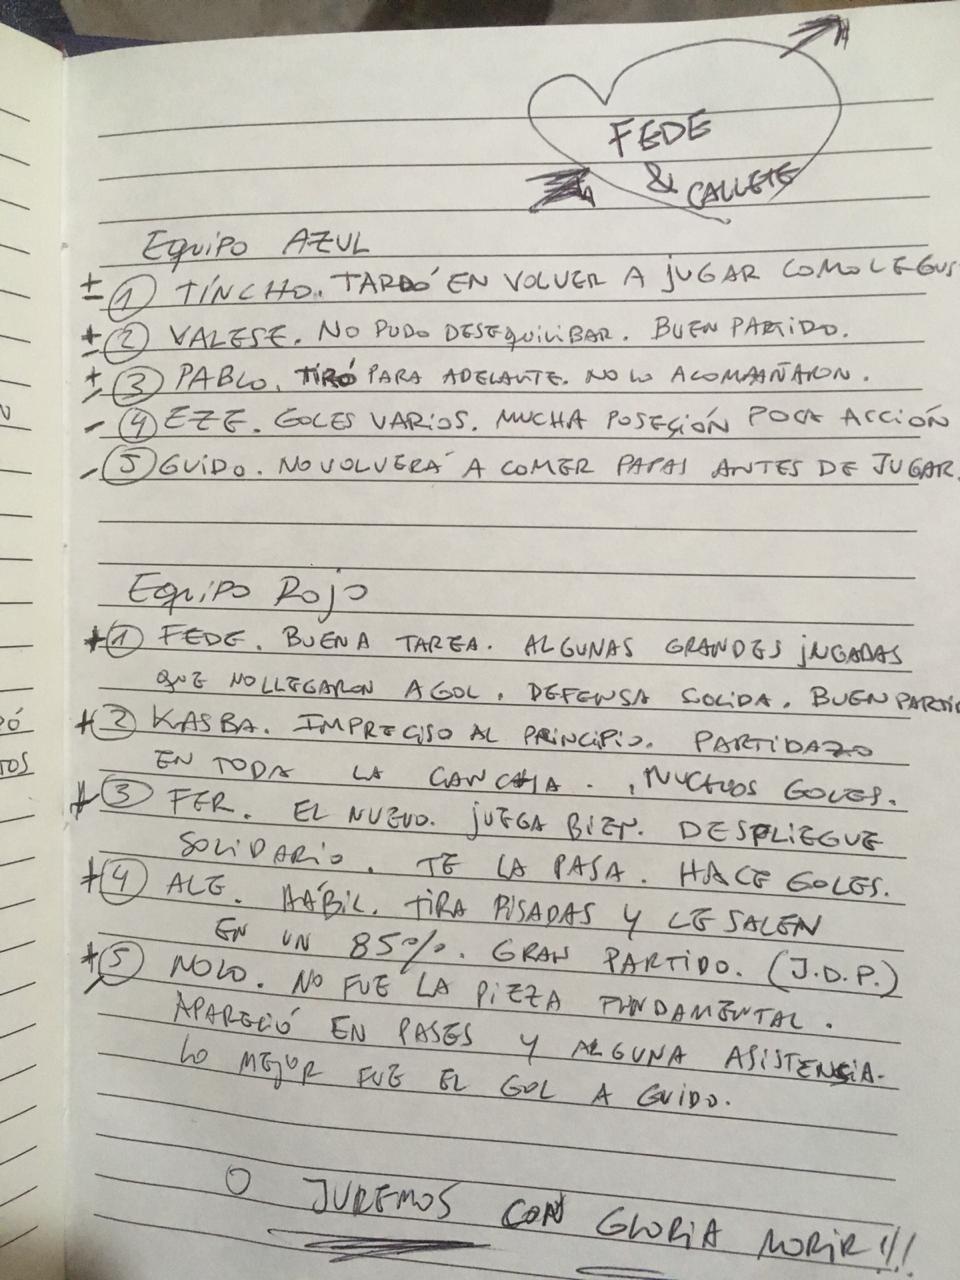 FEDE
& CALLETE
Equipo AZUL
± 1 TINCHO. TARDÓ EN VOLVER A JUGAR COMO LE GUS
± 2 VALESE. NO PUDO DESEQUILIBAR. BUEN PARTIDO.
± 3 PABLO. TIRÓ PARA ADELANTE. NO LO ACOMPAÑARON.
- 4 EZE. GOLES VARIOS. MUCHA POSECIÓN POCA ACCIÓN
- 5 GUIDO. NO VOLVERÁ A COMER PAPAS ANTES DE JUGAR.
Equipo ROJO
+ 1 FEDE. BUENA TAREA. ALGUNAS GRANDES JUGADAS
QUE NO LLEGARON A GOL. DEFENSA SOLIDA. BUEN PARTID
+ 2 KASBA. IMPRECISO AL PRINCIPIO. PARTIDAZO
EN TODA LA CANCHA. MUCHOS GOLES.
+ 3 FER. EL NUEVO. JUEGA BIEN. DESPLIEGUE
SOLIDARIO. TE LA PASA. HACE GOLES.
+ 4 ALE. HÁBIL. TIRA PISADAS Y LE SALEN
EN UN 85%. GRAN PARTIDO. (J.D.P.)
± 5 NOLO. NO FUE LA PIEZA FUNDAMENTAL.
APARECIÓ EN PASES Y ALGUNA ASISTENCIA.
LO MEJOR FUE EL GOL A GUIDO.
O JUREMOS CON GLORIA MORIR!!!